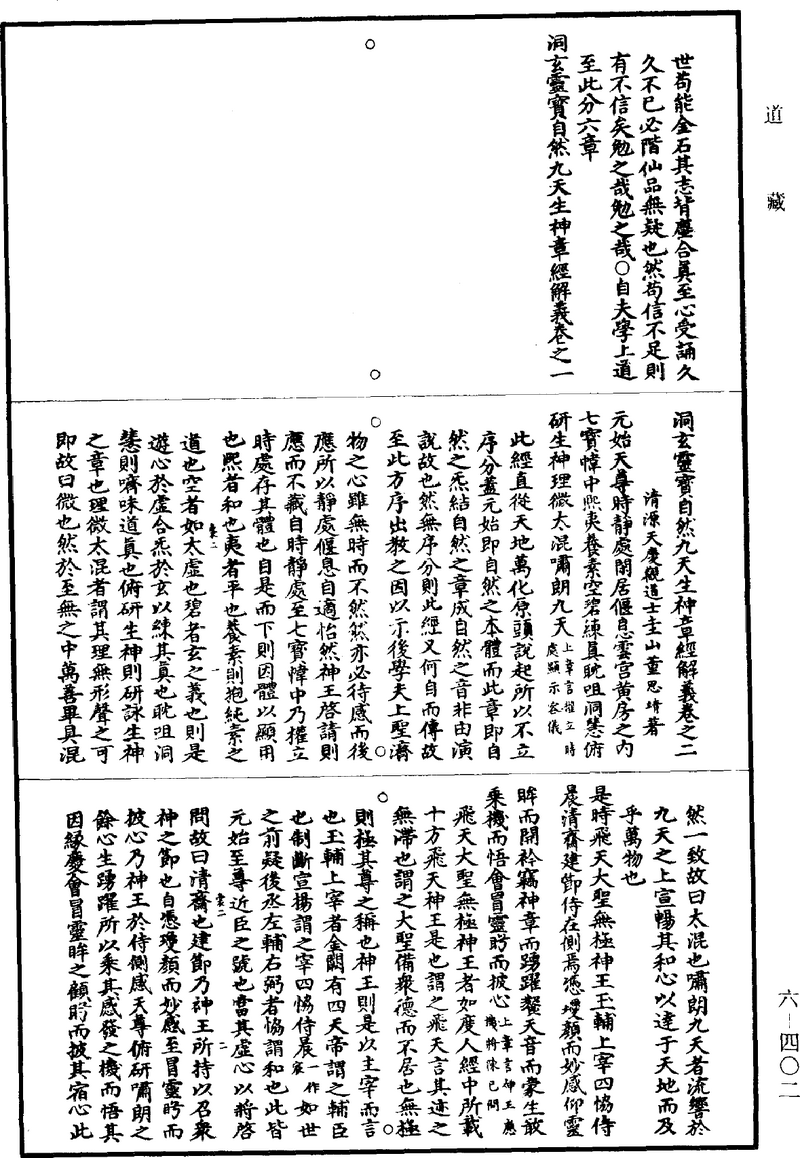 道藏
世苟能金石其志背塵合真至心受誦久
久不已必階仙品無疑也然苟信不足則
有不信矣勉之哉勉之哉○自夫學上道
至此分六章
洞玄靈寶自然九天生神章經解義卷之一
洞玄靈寶自然九天生神章經解義卷之二
清源天慶觀道士圭山董思靖著
元始天尊時靜處閑居偃息雲宮黃房之內
七寶幃中熙夷養素空碧練真耽咀洞慧俯
研生神理微太混嘯朗九天上章言權立時處顯示容儀
此經直從天地萬化原頭說起所以不立
序分蓋元始即自然之本體而此章即自
然之炁結自然之章成自然之音非由演
說故也然無序分則此經又何自而傳故
至此方序出教之因以示後學夫上聖濟
物之心雖無時而不然然亦必待感而後
應所以靜處偃息自適怡然神王啓請則
應而不藏自時靜處至七寶幃中乃權立
時處存其體也自是而下則因體以顯用
也熙者和也夷者平也養素則抱純素之
道也空者如太虛也碧者玄之義也則是
遊心於虛合炁於玄以練其真也耽咀洞
慧則嚌味道真也俯研生神則研詠生神
之章也理微太混者謂其理無形聲之可
即故曰微也然於至無之中萬善畢具混
然一致故曰太混也嘯朗九天者流響於
九天之上宣暢其和心以達于天地而及
乎萬物也
是時飛天大聖無極神王玉輔上宰四恊侍
晨清齋建節侍在側焉憑瓊顏而妙感仰靈
眸而開衿竊神章而踴躍餐天音而蒙生敢
乘機而悟會冒靈眄而披心上章言神王應機將陳已問
飛天大聖無極神王者如度人經中所載
十方飛天神王是也謂之飛天言其迹之
無滯也謂之大聖備衆德而不居也無極
則極其尊之稱也神王則是以主宰而言
也玉輔上宰者金闕有四天帝謂之輔臣
也制斷宣揚謂之宰四恊侍晨一作宸如世
之前疑後丞左輔右弼者恊謂和也此皆
元始至尊近臣之號也當其虛心以將啓
問故曰清齋也建節乃神王所持以召衆
神之節也自憑瓊顏而妙感至冒靈眄而
披心乃神王於侍側感天尊俯研嘯朗之
餘心生踴躍所以乘其感發之機而悟其
因緣慶會冒靈眸之顧眄而披其宿心此
六－四〇二